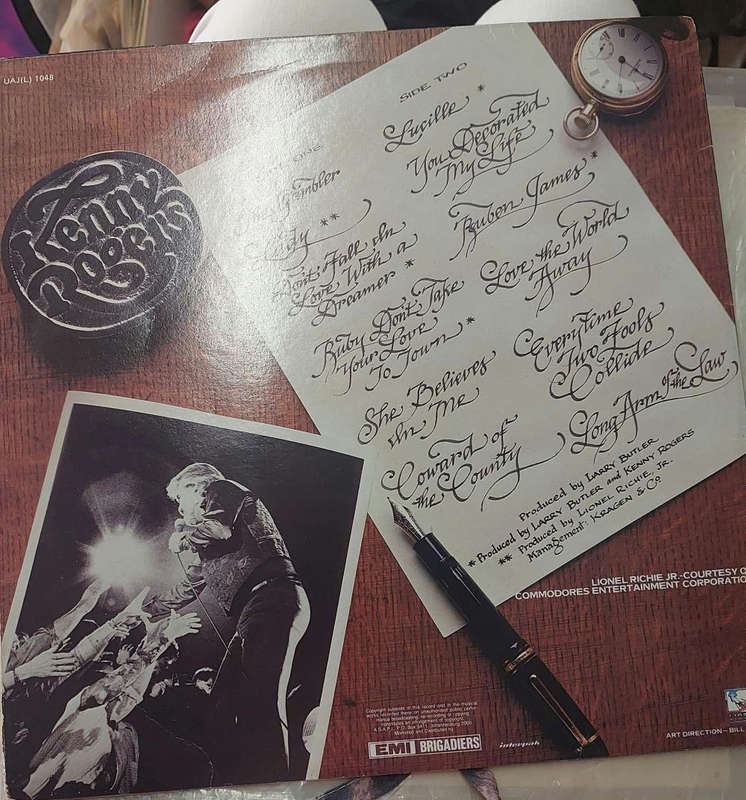 UAJ(L) 1048
Kenny
Rogers
ONE
Gambler
Lady **
Don't Fall In
Love With a
Dreamer *
Ruby Don't Take
Your Love
To Town *
She Believes
In Me
Coward of
the County
SIDE TWO
Lucille *
You Decorated
My Life
Ruben James *
Love the World
Away
Everytime
Two Fools
Collide
Long Arm of the Law
Produced by LARRY BUTLER
* Produced by LARRY BUTLER and KENNY ROGERS
** Produced by LIONEL RICHIE, JR.
Management: KRAGEN & Co
LIONEL RICHIE JR.-COURTESY O
COMMODORES ENTERTAINMENT CORPORATIO
Copyright subsists in this record and in the musical
EMI BRIGADIERS
interpak
ART DIRECTION - BILL